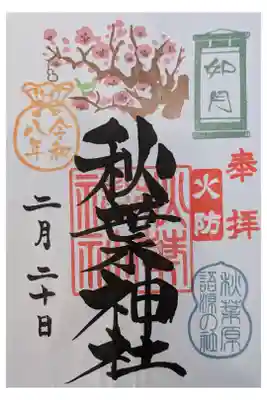 如月
奉拝
火防
秋葉神社
秋葉神社
秋葉原
語源の社
令和
八年
二月二十日